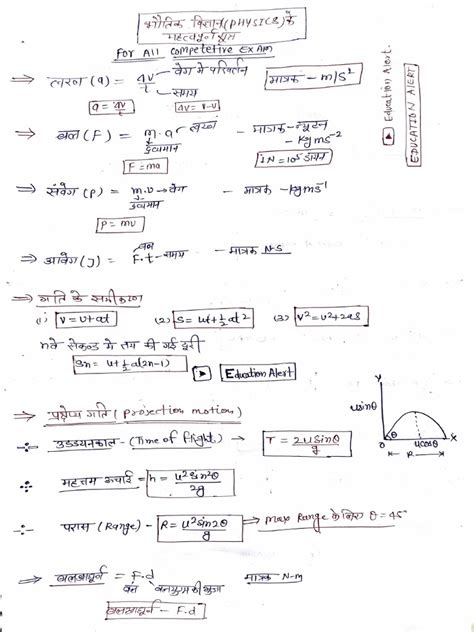 भौतिक विज्ञान (PHYSICS) के
महत्वपूर्ण सूत्र
For All Competetive Exam
⇒ त्वरण (a) = ΔV/t → वेग में परिवर्तन → समय मात्रक - m/s²
a = ΔV/t ΔV = V-U
⇒ बल (F) = m.a → त्वरण - मात्रक - न्यूटन
द्रव्यमान - Kgms⁻²
F = ma 1N = 10⁵ डायन
⇒ संवेग (P) = m.v → वेग - मात्रक - Kgms⁻¹
द्रव्यमान
P = mv
⇒ आवेग (J) = F.t - समय - मात्रक N-S
बल
⇒ गति के समीकरण
(1) V = U+at (2) S = ut+½at² (3) V² = u²+2as
nवें सेकेण्ड में तय की गई दूरी
Sn = u+½a(2n-1) Education Alert
⇒ प्रक्षेप्य गति (projection motion)
उड्डयनकाल - (Time of flight) → T = 2USinθ/g
महत्तम ऊंचाई = h = U²Sin²θ/2g
परास (Range) - R = U²Sin2θ/g ⇒ max Range के लिए θ = 45°
Y
usinθ
θ
O ucosθ X
R
⇒ बलआघूर्ण = F.d मात्रक N-m
बल बलयुग्म की भुजा
बलआघूर्ण - F.d
Education Alert.
EDUCATION ALERT